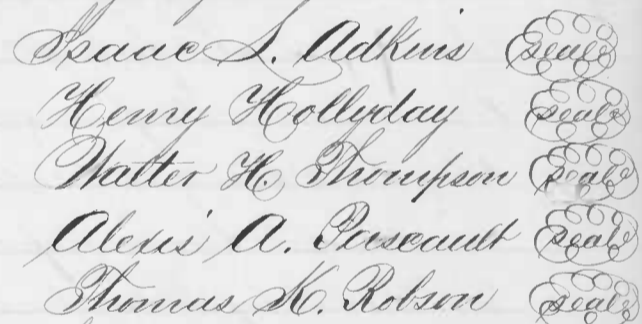 Isaac L. Adkins seal
Henry Hollyday seal
Walter H. Thompson seal
Alexis A. Pascault seal
Thomas K. Robson seal